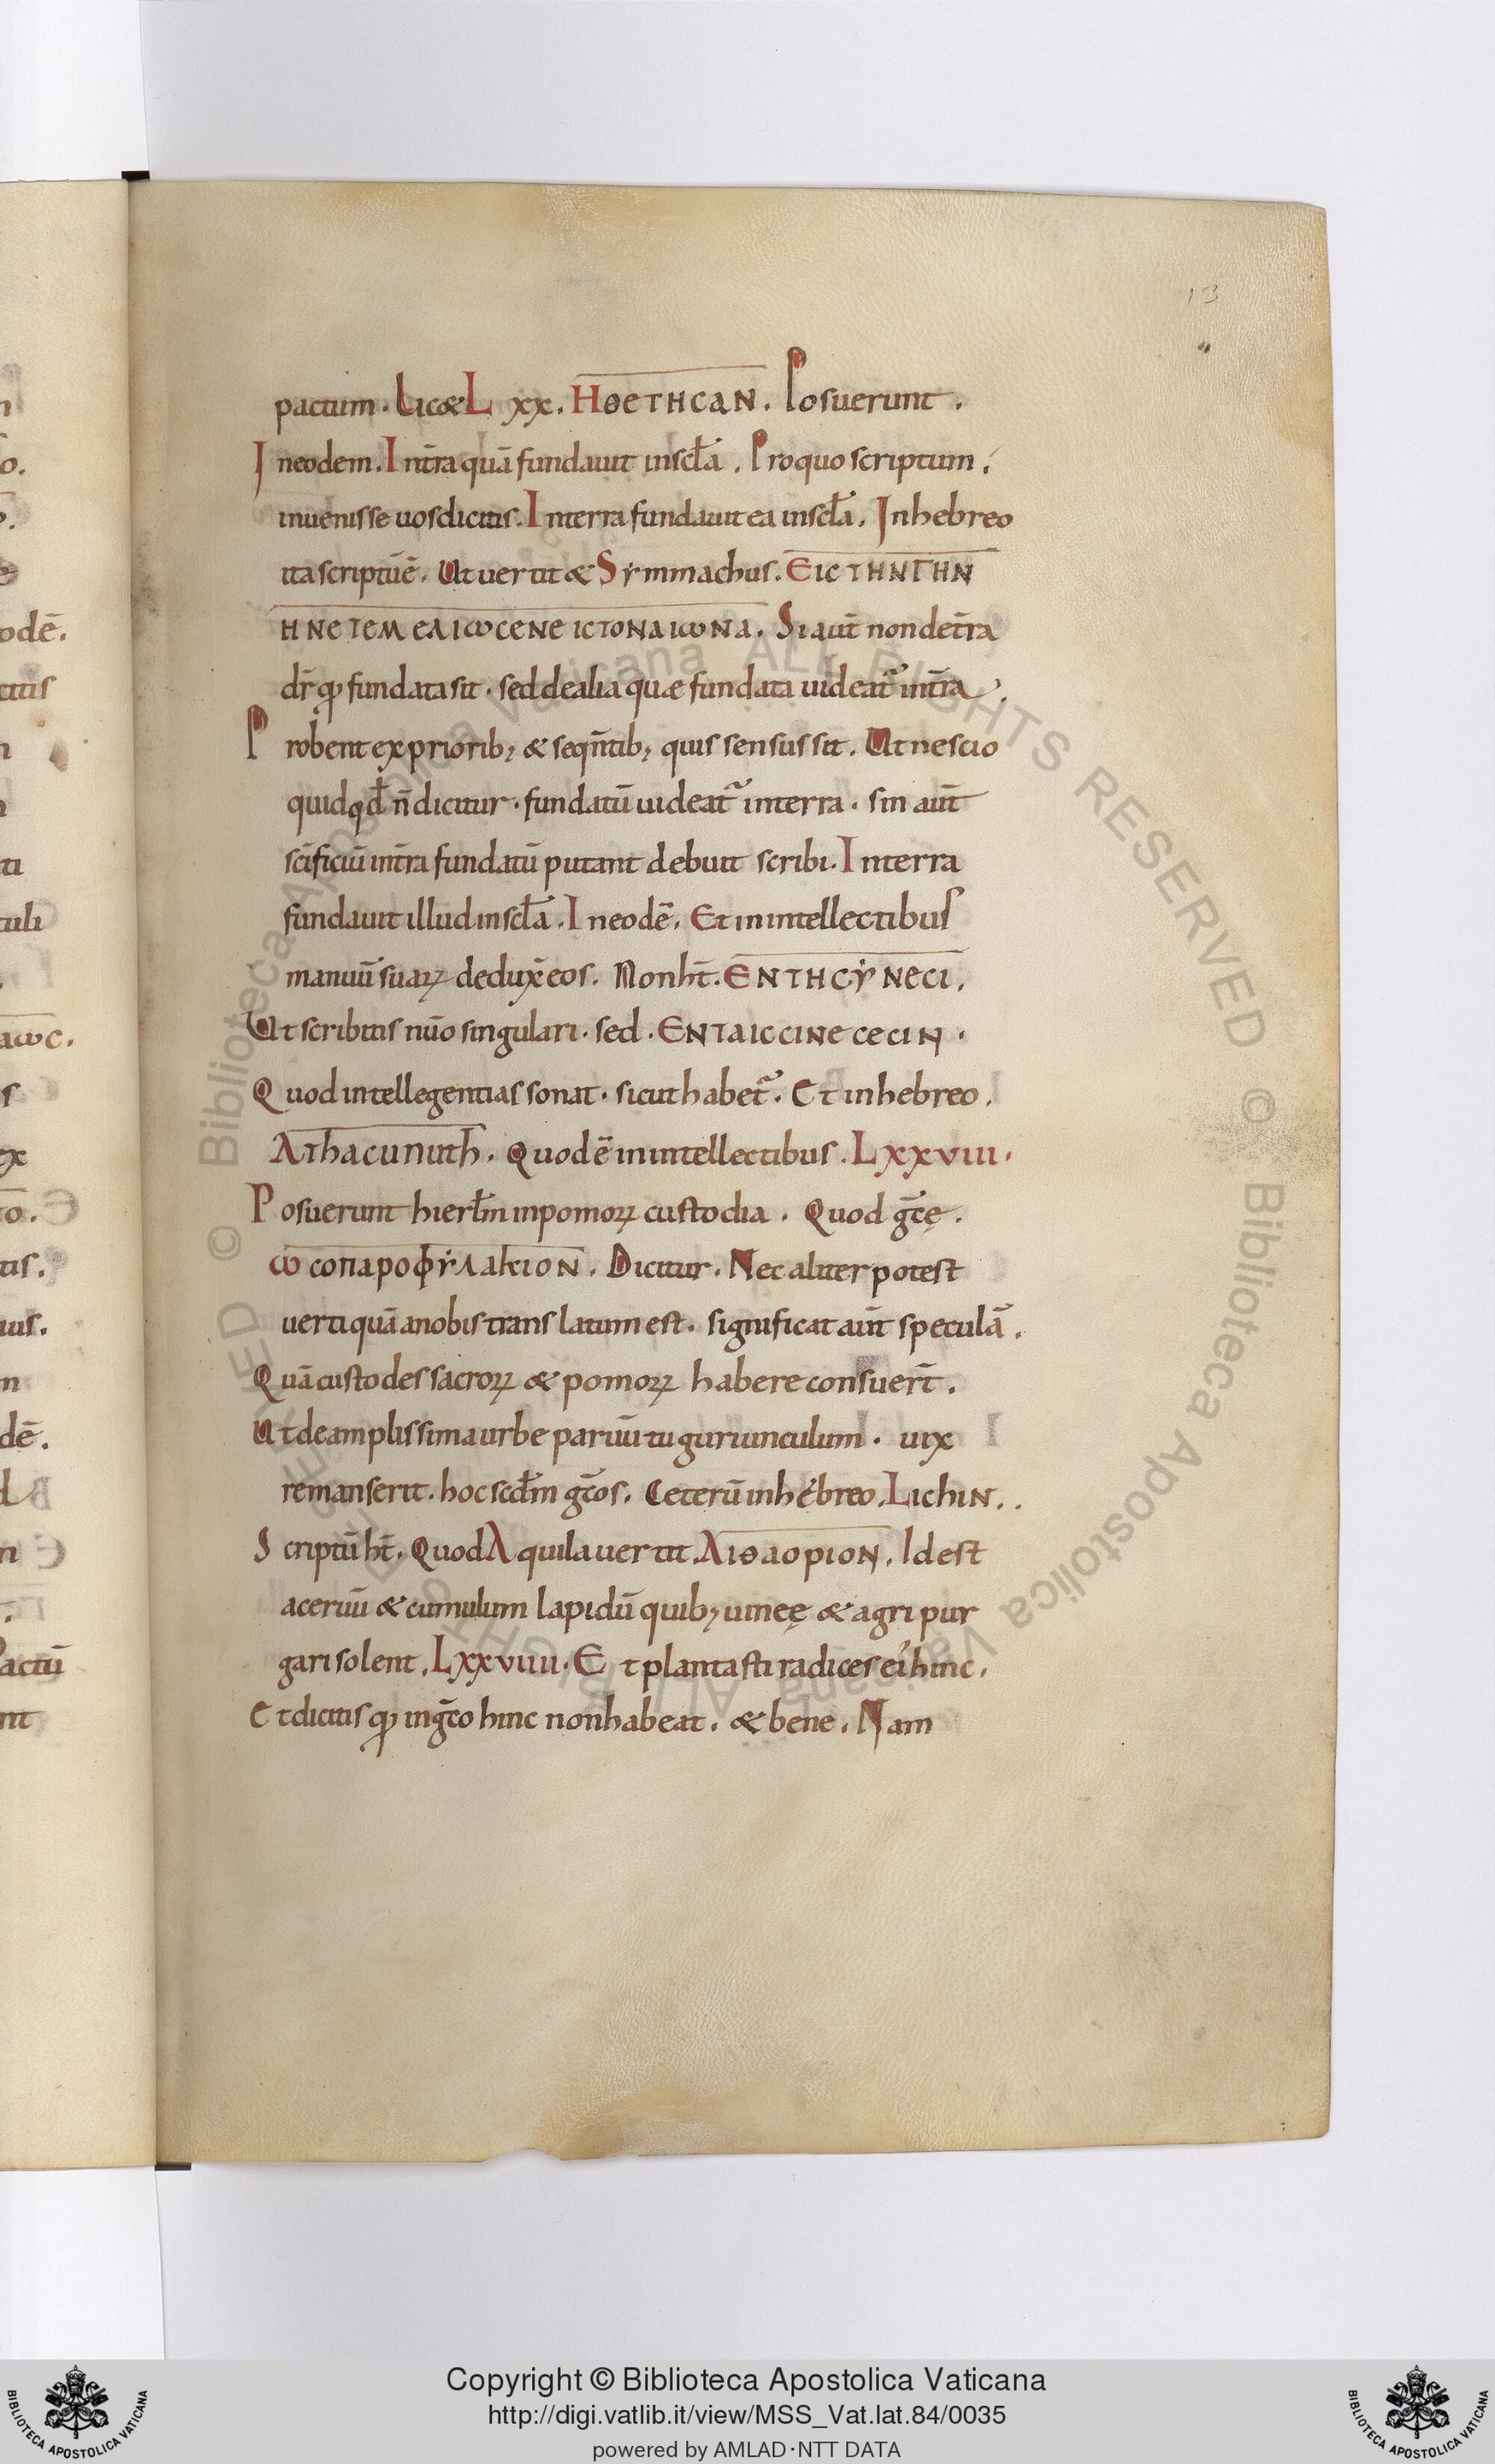 13
pactum. Lic& Lxx. HΘETHCAN. Posuerunt.
Ineodem. Int̄ra quā fundauit inscl̄a. Pro quo scriptum.
inuenisse uos dicitis. In terra fundauit ea inscl̄a. In hebreo
ita scriptū ē. Ut uertit & Symmachus. ЄIC THN ΓHN
HNETEMEΛIωCEN EIC TON AIωNA. Si aut̄ non de t̄ra
dr̄ qđ fundata sit. sed de alia quæ fundata uideat᷑ in t̄ra.
Probent ex priorib; & seqn̄tib; quis sensus sit. Ut nescio
quid qd̄ n̄ dicitur. fundatū uideat᷑ in terra. sin aut̄
sc̄ificiū in t̄ra fundatū putant debuit scribi. In terra
fundauit illud inscl̄a. In eodē. Et in intellectibus
manuū suarꝝ dedux̄ eos. Non ht̄. ЄNTHCẎNECI.
Ut scribitis nūo singulari. sed. ЄNTAICCINECECIN.
Quod intellegentias sonat. sicut habet᷑. Et in hebreo.
Athacunuth. Quod ē in intellectibus. Lxxviii.
Posuerunt hierl̄m in pomorꝝ custodia. Quod gc̄ę.
ωCOΠAPOΦẎΛAKION. Dicitur. Nec aliter potest
uerti quā a nobis translatum est. significat aūt speculā.
Quā custodes sacrorꝝ & pomorꝝ habere consuert̄.
Ut de amplissima urbe paruū tuguriunculum. uix
remanserit. hoc scd̄m gc̄os. Ceterū in hebreo. Lichin..
Scriptū ht̄. Quod Aquila uertit. ΛIΘAOPION. Id est
aceruū & cumulum lapidū quib; uineę & agri pur
gari solent. Lxxviiii. Et plantasti radices ei hinc.
Et dicitis qđ in gc̄o hinc non habeat. & bene. Nam
Copyright © Biblioteca Apostolica Vaticana
http://digi.vatlib.it/view/MSS_Vat.lat.84/0035
powered by AMLAD·NTT DATA